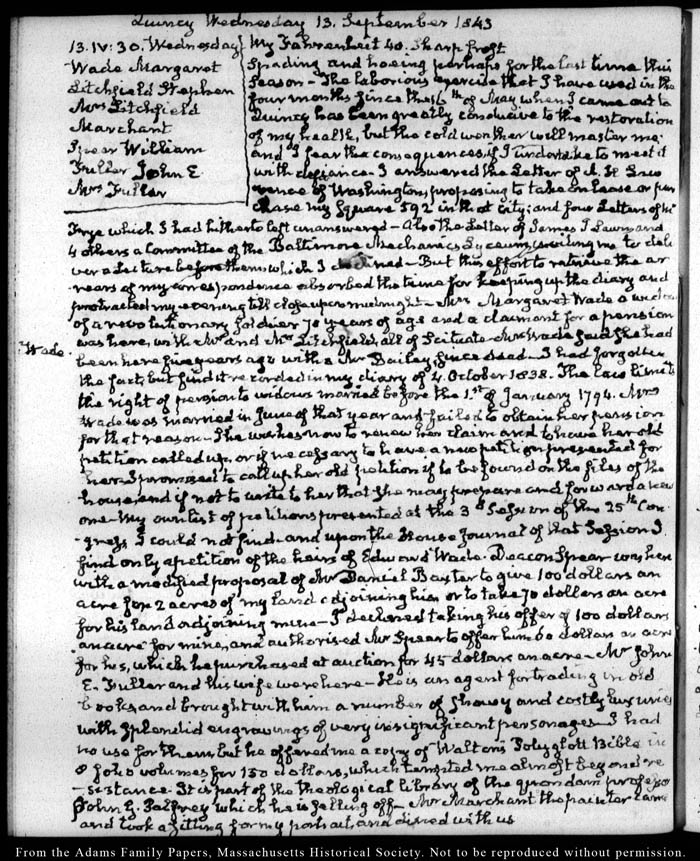 Quincy Wednesday 13. September 1843
13. IV:30. Wednesday
Wade Margaret
Litchfield Stephen
Mrs Litchfield
Marchant
Spear William
Fuller John E.
Mrs Fuller
Fahrenheit 40. Sharp frost
Spading and hoeing perhaps for the last time this
season - The laborious exercise that I have used in the
four months since the 6th of May when I came out to
Quincy has been greatly conducive to the restoration
of my health, but the cold weather will master me
and I fear the consequences if I undertake to meet it
with defiance - I answered the Letter of
of Washington, proposing to take on lease or pur
chase my Square 592 in that city; and four Letters of
Frye which I had hitherto left unanswered - Also the Letter of James and
4 others a Committee of the Baltimore Mechanics Lyceum, inviting me to deli
ver a Lecture before them which I declined - But this effort to retrieve the ar
rears of my correspondence absorbed the time for keeping up the diary and
protracted my evening till close upon midnight - Mrs Margaret Wade a widow
of a revolutionary soldier 70 years of age and a claimant for a pension
was here, with Mr and Mrs Litchfield, all of Scituate - Mrs Wade said she had
Wade.
been here five years ago with a Mr Bailey, since dead - I had forgotten
the fact, but find it recorded in my diary of 4. October 1838. The law limits
the right of pension to widows married before the 1st of January 1794. Mrs
Wade was married in June of that year and failed to obtain her pension
for that reason - She wishes now to renew her claim and to have her old
petition called up, or if necessary to have a new petition presented for
her - I promised to call up her old petition if to be found on the files of the
house, and if not to write to her that she may prepare and forward a new
one - My own list of petitions presented at the 3d Session of the 25th Con
gress I could not find - and upon the House Journal of that Session I
find only a petition of the heirs of Edward Wade. Deacon Spear was here
with a modified proposal of Mr Daniel Baxter to give 100 dollars an
acre for 2 acres of my land adjoining him or to take 70 dollars an acre
for his land adjoining mine - I declined taking his offer of 100 dollars
an acre for mine, and authorised Mr Spear to offer him 60 dollars an acre
for his, which he purchased at auction for 45 dollars an acre - Mr John
E. Fuller and his wife were here - He is an agent for trading in old
books and brought with him a number of showy and costly luxuries
with splendid engravings of very insignificant personages - I had
no use for them, but he offered me a copy of Walton's Polyglott Bible in
8 folio volumes for 130 dollars, which tempted me almost beyond re
-sistance - It is part of the theological library of the quondam professor
John G. Palfrey which he is selling off - Mr Marchant the painter came
and took a sitting for my portrait, and dined with us
From the Adams Family Papers, Massachusetts Historical Society. Not to be reproduced without permission.